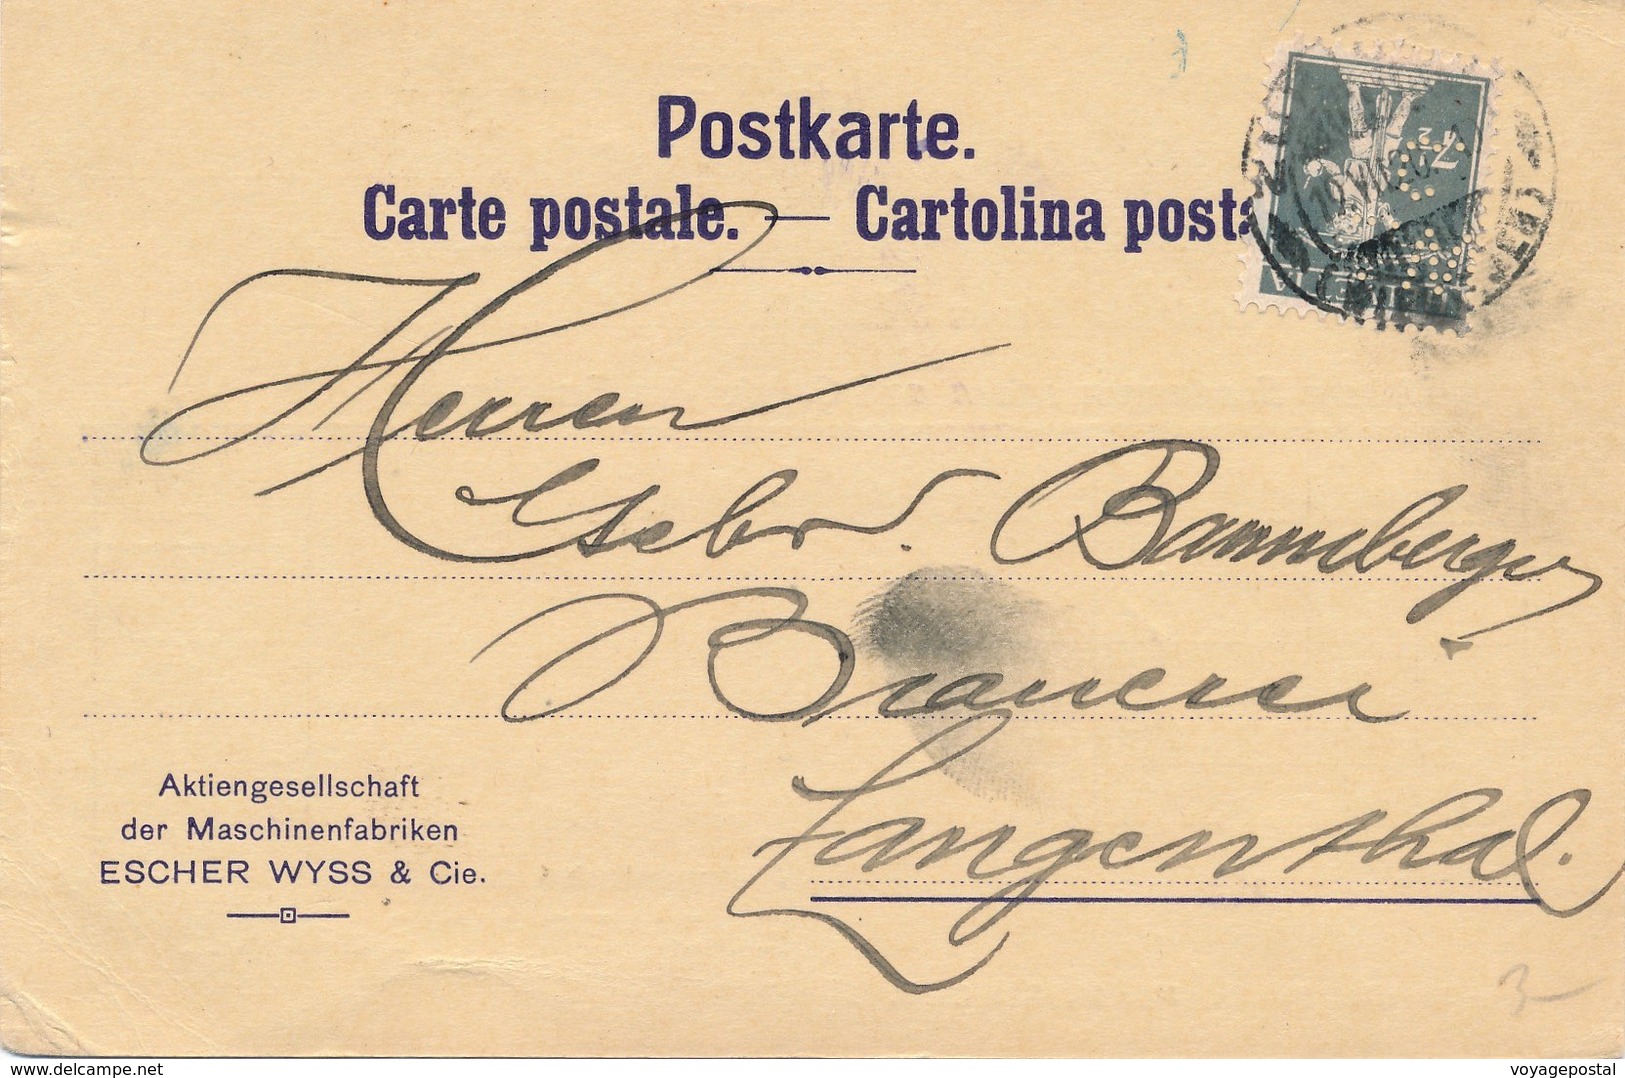 Postkarte.
Carte postale. — Cartolina posta
7½
HELVETIA
Herren
Gebr. Bammberger
Brauerei
Langenthal.
Aktiengesellschaft
der Maschinenfabriken
ESCHER WYSS & Cie.
delcampe.net
voyagepostal